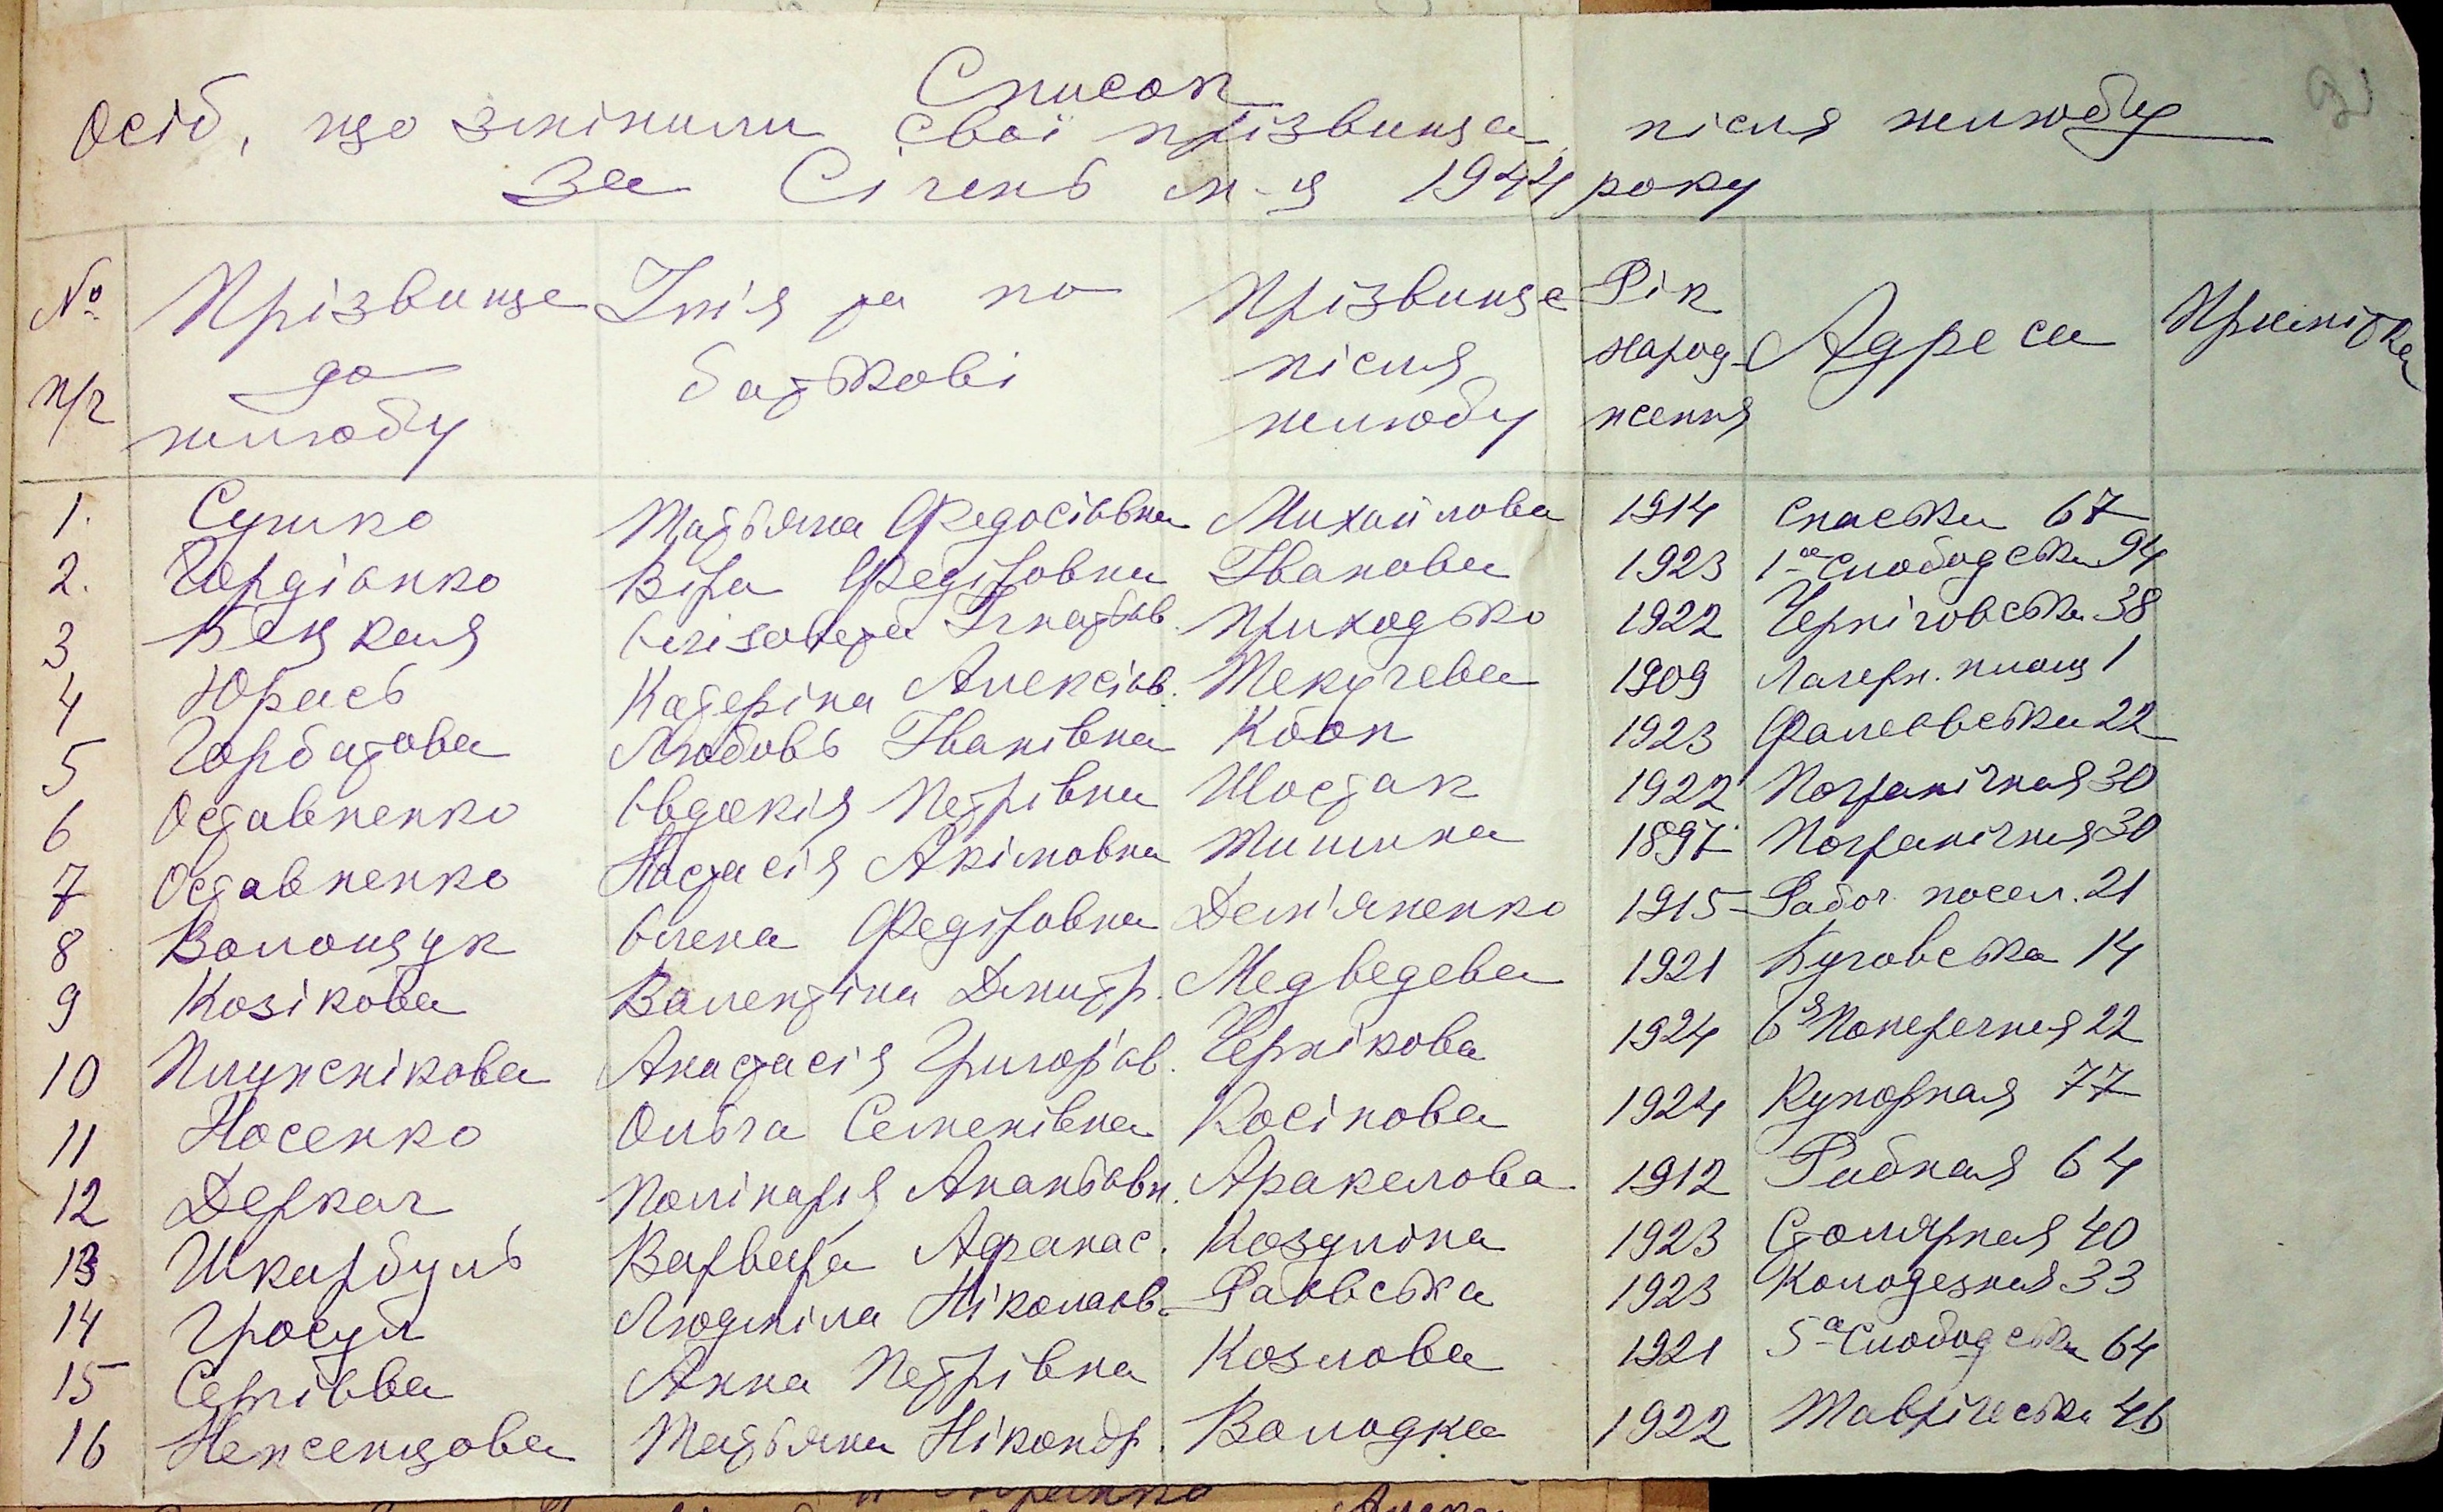 Список
Осіб, що змінили свої прізвища після шлюбу
За Січень м-ц 1944 року
№ п/г Прізвище до шлюбу Імія та по батькові Прізвище після шлюбу Рік народження Адреса Примітка
1. Сушко Татьяна Федосієвна Михайлова 1914 Спаська 67
2. Гордієнко Віра Федіровна Іванова 1923 1ая Слободська 94
3 Бецкая Єлізавета Ігнатьєв. Приходько 1922 Черніговська 38
4 Юрась Катеріна Алексієв. Текучева 1909 Лагерн. площ 1
5 Горбатова Любовь Іванівна Коок 1923 Фалеєвська 22
6 Оставненко Євдокія Петрівна Шостак 1922 Погранічная 30
7 Оставненко Настасія Акімовна Тишина 1897 Погранічная 30
8 Волощук Єлена Федіровна Дем'яненко 1915 Рабоч. посел. 21
9 Козікова Валентіна Дмитр. Медведева 1921 Буговська 14
10 Плужнікова Анастасія Григор'єв. Чернікова 1924 6я Поперечная 22
11 Носенко Ольга Семенівна Косінова 1924 Купорная 77
12 Деркач Полінарія Ананьєвн. Аракелова 1912 Рибная 64
13 Шкарбуль Варвара Афанас. Козуліна 1923 Столярная 40
14 Гросул Людміла Ніколаєв. Раєвська 1923 Колодезная 33
15 Сергієва Анна Петрівна Козлова 1921 5а Слободська 64
16 Неженцова Татьяна Нікондр. Володка 1922 Таврічеська 46